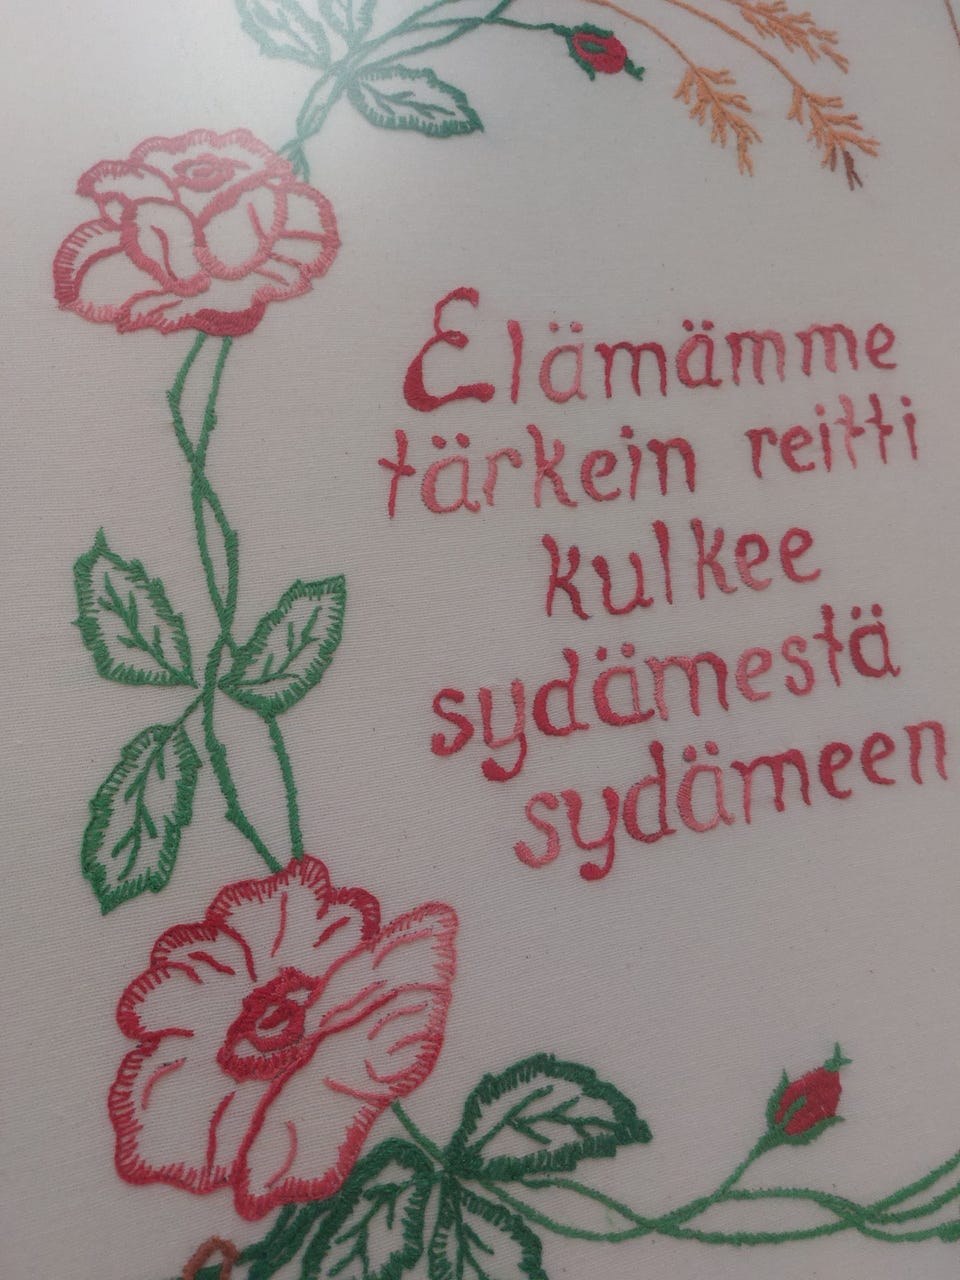 Elämämme
tärkein reitti
kulkee
sydämestä
sydämeen